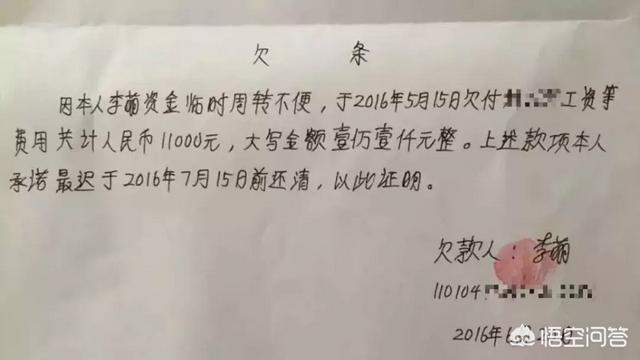 欠 条
因本人李萌资金临时周转不便，于2016年5月15日欠付工资等
费用共计人民币11000元，大写金额壹仿壹仟元整。上述款项本人
承诺最迟于2016年7月15日前还清，以此证明。
欠款人：李萌
110104
2016年6
悟空问答